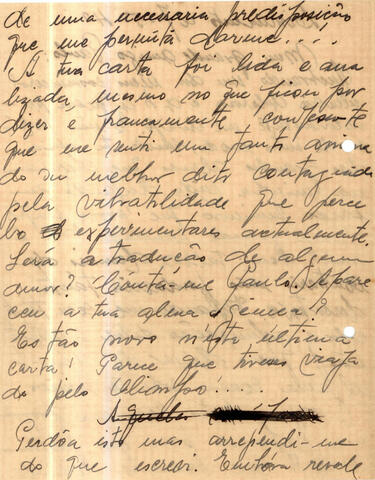 de uma necessaria predisposição
que me permitá dar-me....
A tua carta foi lida e ana
lizada, mesmo no que ficou por
dizer e francamente confesso-te
que me senti um tanto anima
do ou melhor dito contagiado
pela vibratilidade que perce
bo experimentares actualmente.
Será a tradução de algum
amor? Conta-me Paulo. Apare
ceu a tua alma gémea!?
Es tão novo n'esta última
carta! Parece que tiveses viaja
do pelo
Perdôa isto mas arrependi-me
do que escrevi. Embóra revele